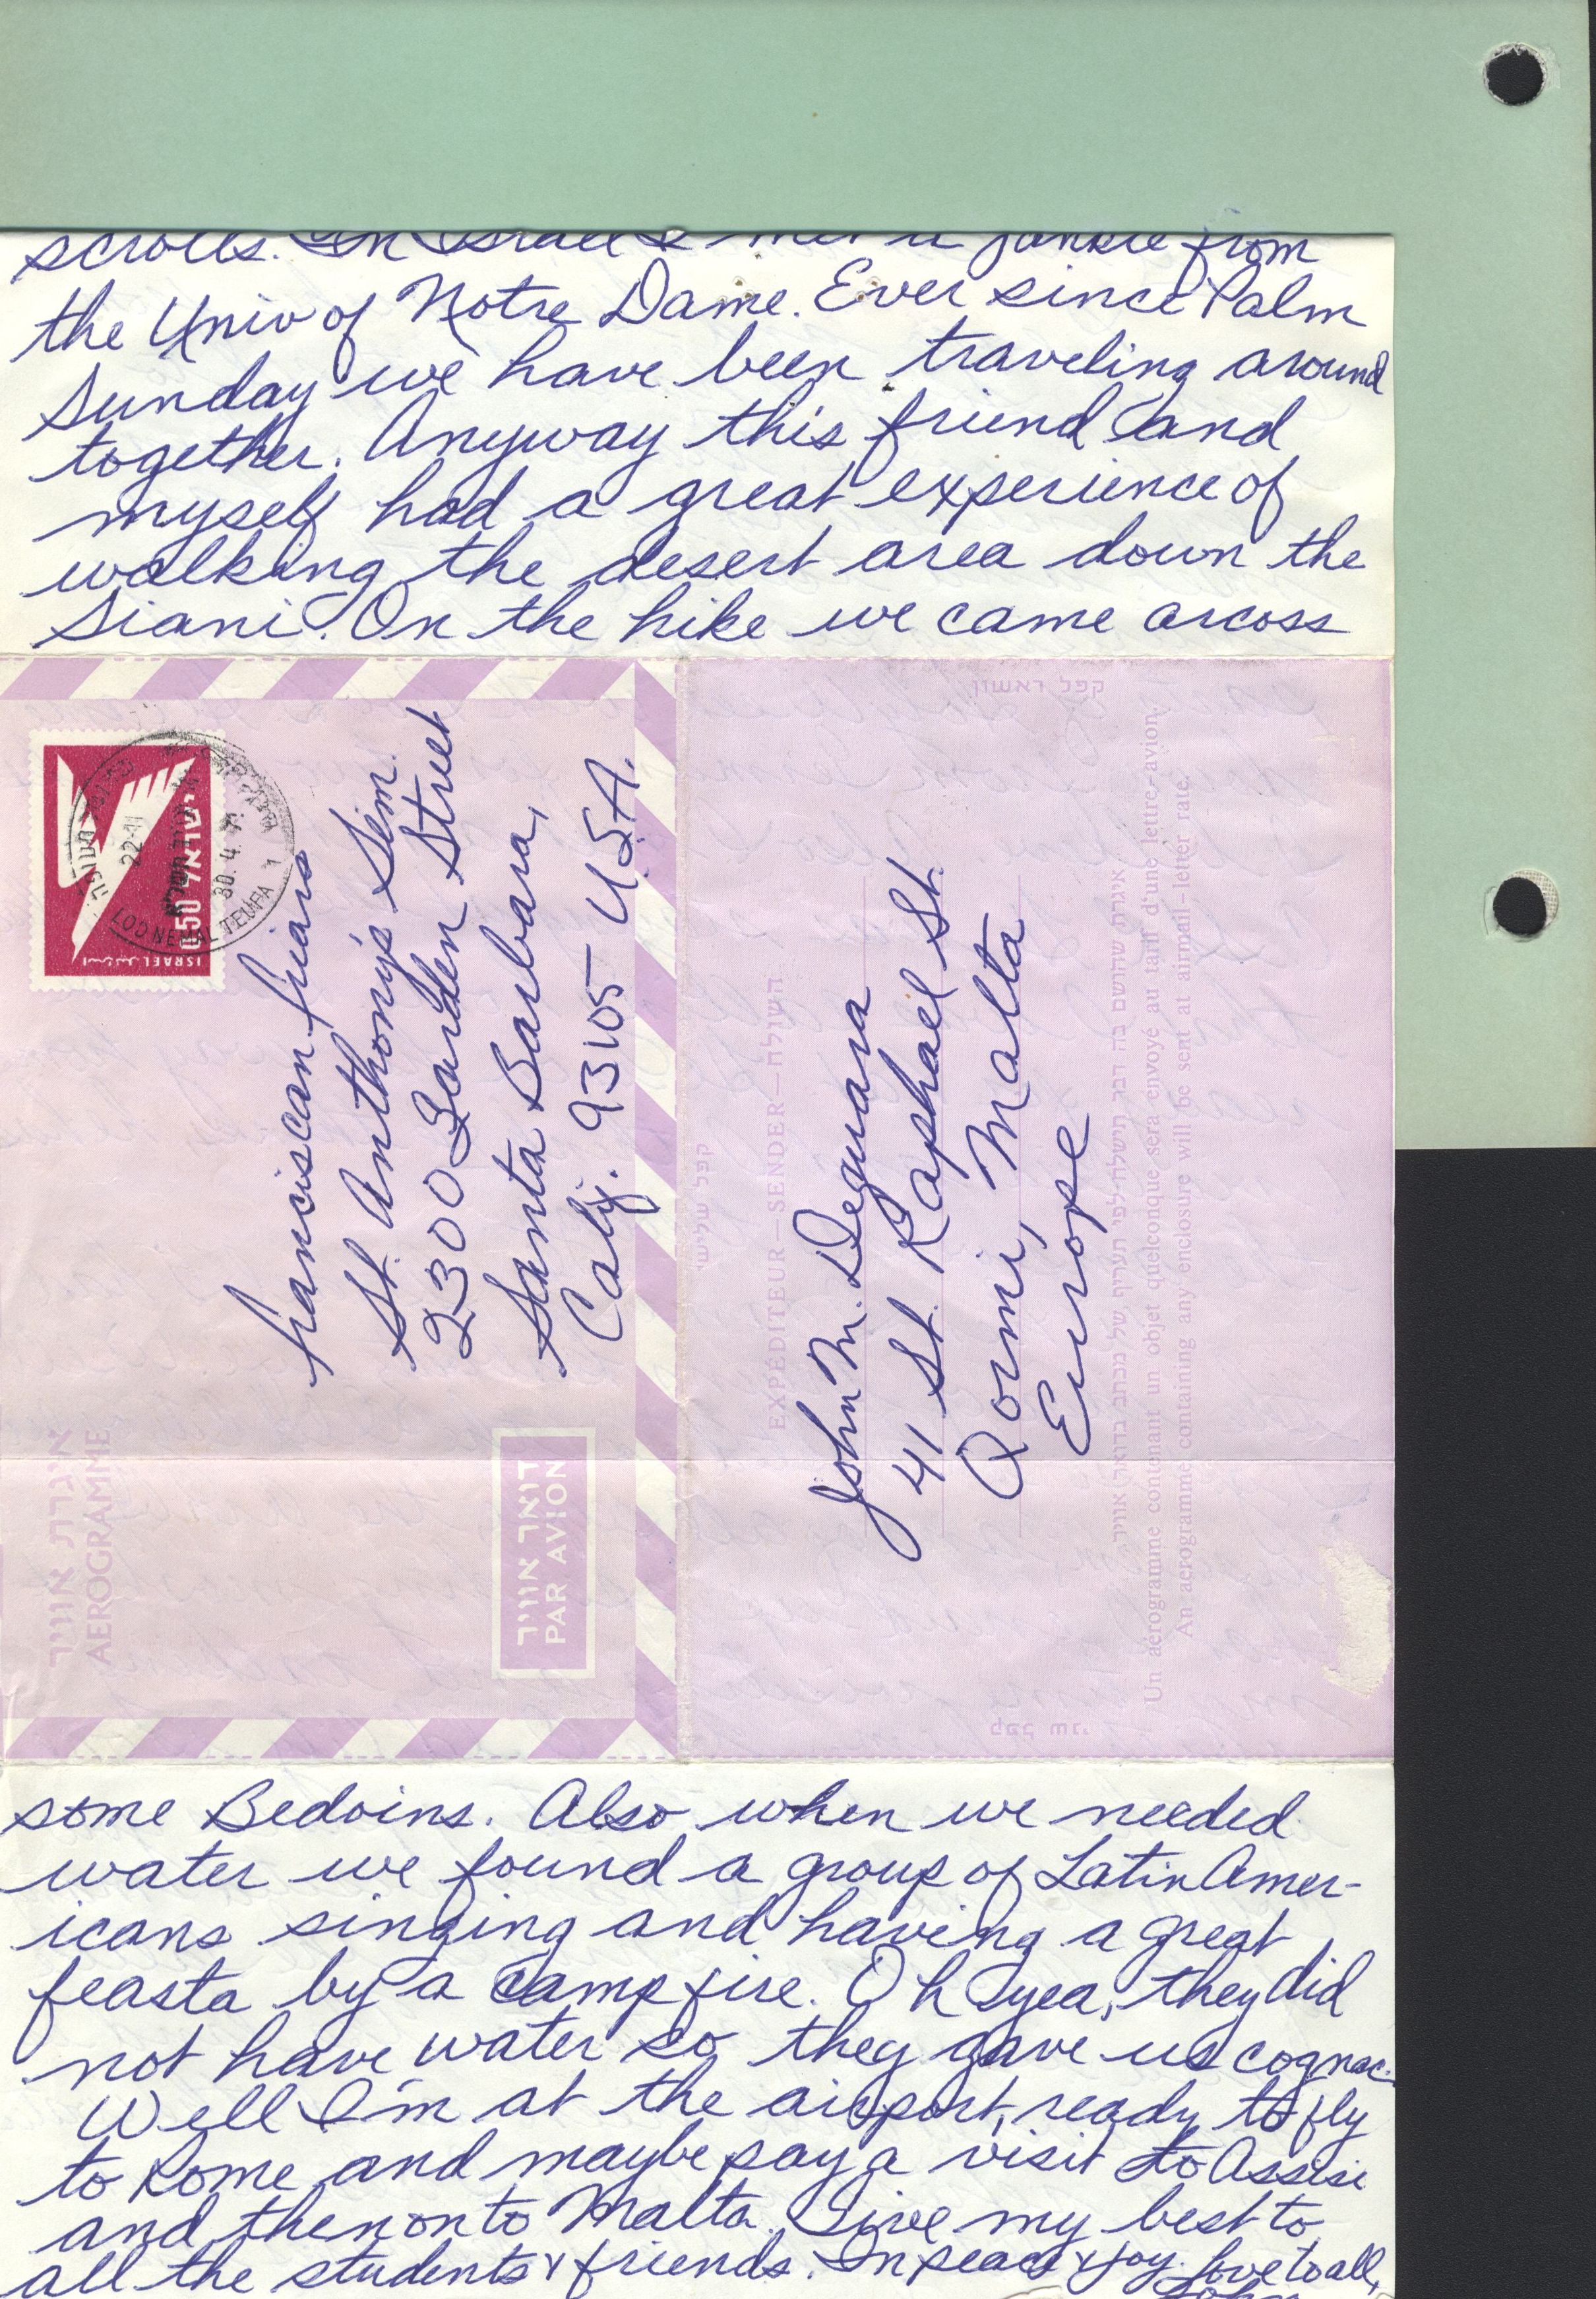 scrolls. In Israel I met a junkie from
the Univ of Notre Dame. Ever since Palm
Sunday we have been traveling around
together. Anyway this friend and
myself had a great experience of
walking the desert area down the
Siani. On the hike we came arcoss
ישראל
0.50
ISRAEL
22-11
30.4.71
LOD NEMAL TEUFA
franciscan friars
St. Anthony's Sem.
2300 Garden Street
Santa Barbara,
Calif. 93105 U.S.A.
איגרת אוויר
AÉROGRAMME
דואר אוויר
PAR AVION
קפל ראשון
קפל שלישי
EXPÉDITEUR—SENDER—השולח
John M. Deguara
41 St. Raphael St.
Qormi, Malta
Europe
איגרת שהושם בה דבר תישלח לפי תעריף של מכתב בדואר אוויר.
Un aérogramme contenant un objet quelconque sera envoyé au tarif d'une lettre-avion.
An aerogramme containing any enclosure will be sent at airmail-letter rate.
קפל שני
some Bedoins. Also when we needed
water we found a group of Latin Amer-
icans singing and having a great
feasta by a camp fire. Oh yea, they did
not have water so they gave us cognac.
Well I'm at the airport, ready to fly
to Rome and maybe pay a visit to Assisi
and then on to Malta. Give my best to
all the students & friends. In peace & joy. Love to all,
John